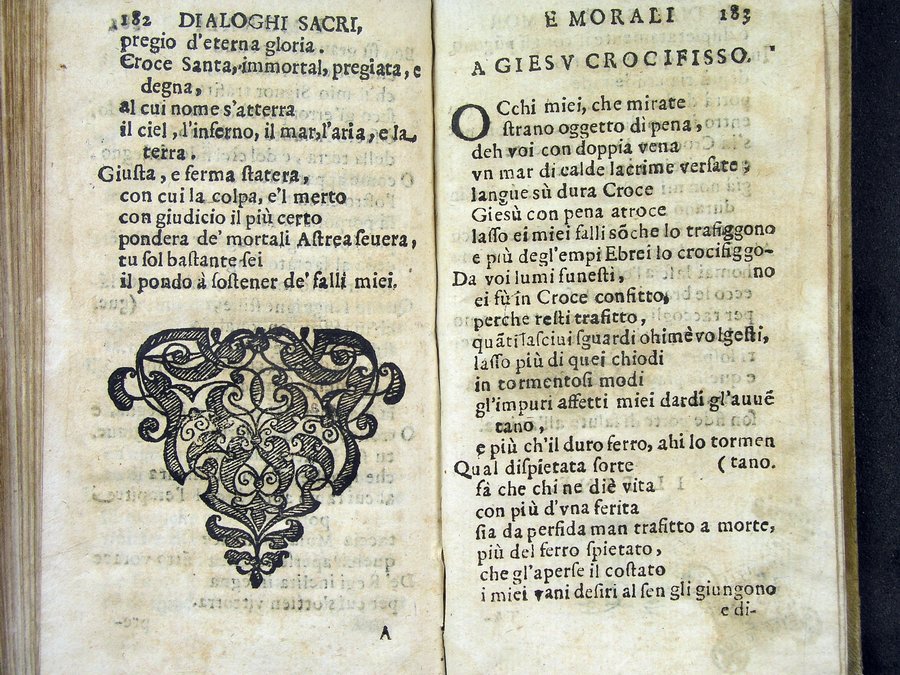 182 DIALOGHI SACRI,
pregio d'eterna gloria.
Croce Santa, immortal, pregiata, e
degna,
al cui nome s'atterra
il ciel, l'inferno, il mar, l'aria, e la
terra.
Giusta, e ferma statera,
con cui la colpa, e'l merto
con giudicio il più certo
pondera de' mortali Astrea seuera,
tu sol bastante sei
il pondo à sostener de' falli miei.
A
E MORALI 183
A GIESV CROCIFISSO.
OCchi miei, che mirate
strano oggetto di pena,
deh voi con doppia vena
vn mar di calde lacrime versate;
langue sù dura Croce
Giesù con pena atroce
lasso ei miei falli sõ che lo trafiggono
e più degl'empi Ebrei lo crocifiggo-
Da voi lumi funesti, (no
ei fù in Croce confitto,
perche resti trafitto,
quãti lasciui sguardi ohimè volgesti,
lasso più di quei chiodi
in tormentosi modi
gl'impuri affetti miei dardi gl'auuẽ
tano,
e più ch'il duro ferro, ahi lo tormen
Qual dispietata sorte (tano.
fà che chi ne diè vita
con più d'vna ferita
sia da perfida man trafitto a morte,
più del ferro spietato,
che gl'aperse il costato
i miei vani desiri al sen gli giungono
e di-